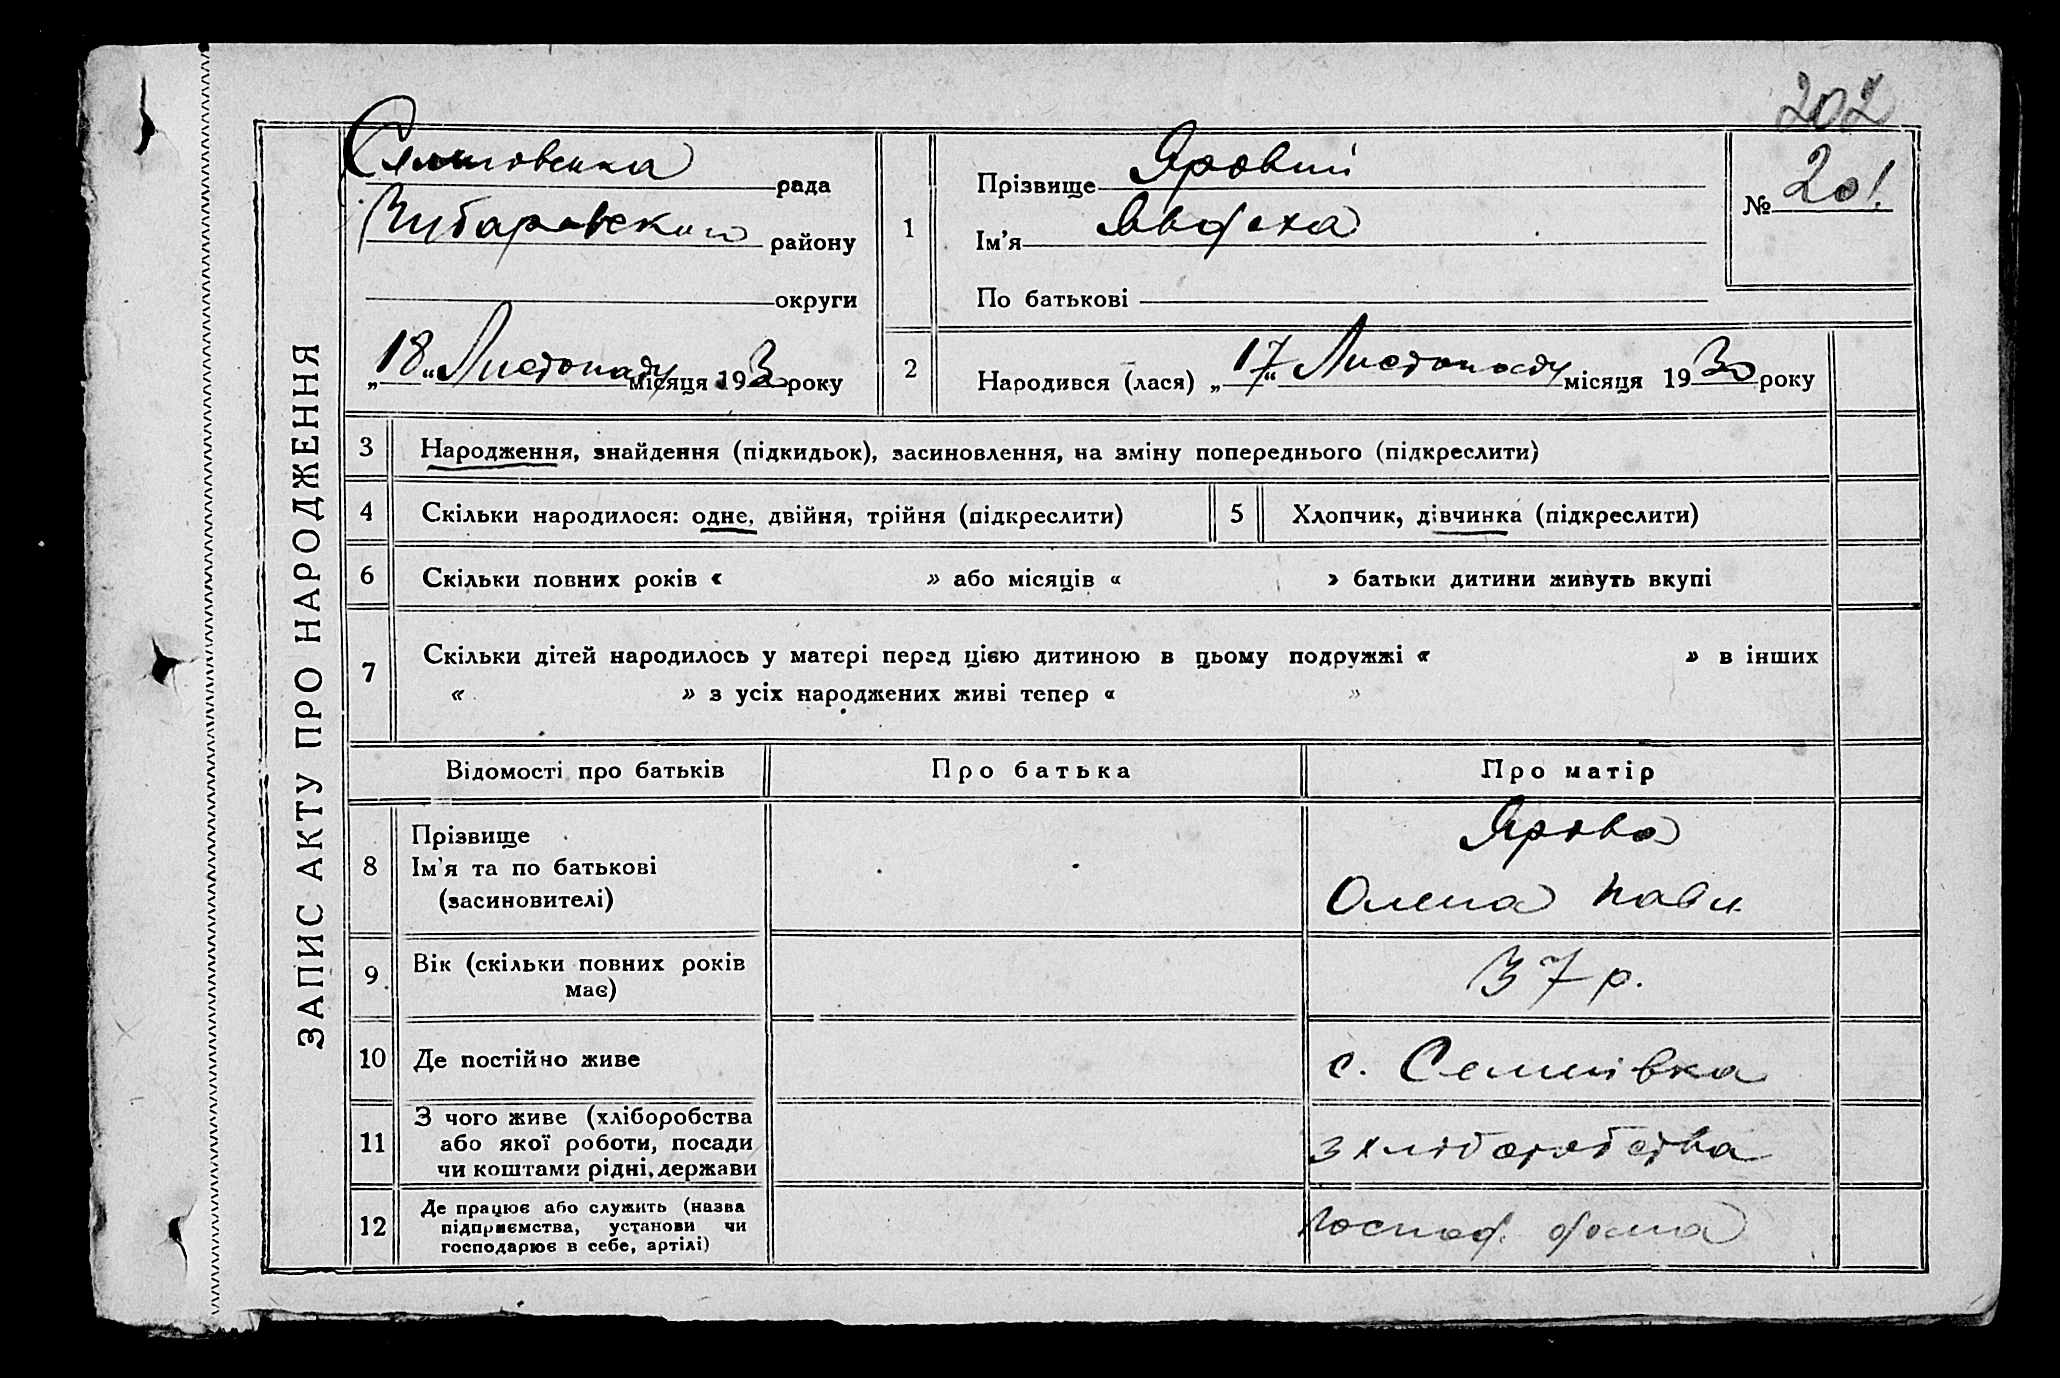 202
ЗАПИС АКТУ ПРО НАРОДЖЕННЯ
рада
району
округи
„18“ Листопаду місяця 193 року
1
Прізвище Яровий
Ім'я Явдоха
По батькові
№ 201.
2
Народився (лася) „17“ Листопаду місяця 1930 року
3 Народження, знайдення (підкидьок), засиновлення, на зміну попереднього (підкреслити)
4 Скільки народилося: одне, двійня, трійня (підкреслити) 5 Хлопчик, дівчинка (підкреслити)
6 Скільки повних років « » або місяців « » батьки дитини живуть вкупі
7 Скільки дітей народилось у матері перед цією дитиною в цьому подружжі « » в інших
« » з усіх народжених живі тепер « »
Відомості про батьків Про батька Про матір
8 Прізвище
Ім'я та по батькові
(засиновителі)
Ярова
Олена Павл.
9 Вік (скільки повних років
має)
37 р.
10 Де постійно живе с. Семенівка
11 З чого живе (хліборобства
або якої роботи, посади
чи коштами рідні, держави
з хліборобства
12 Де працює або служить (назва
підприємства, установи чи
господарює в себе, артілі)
господ. дома